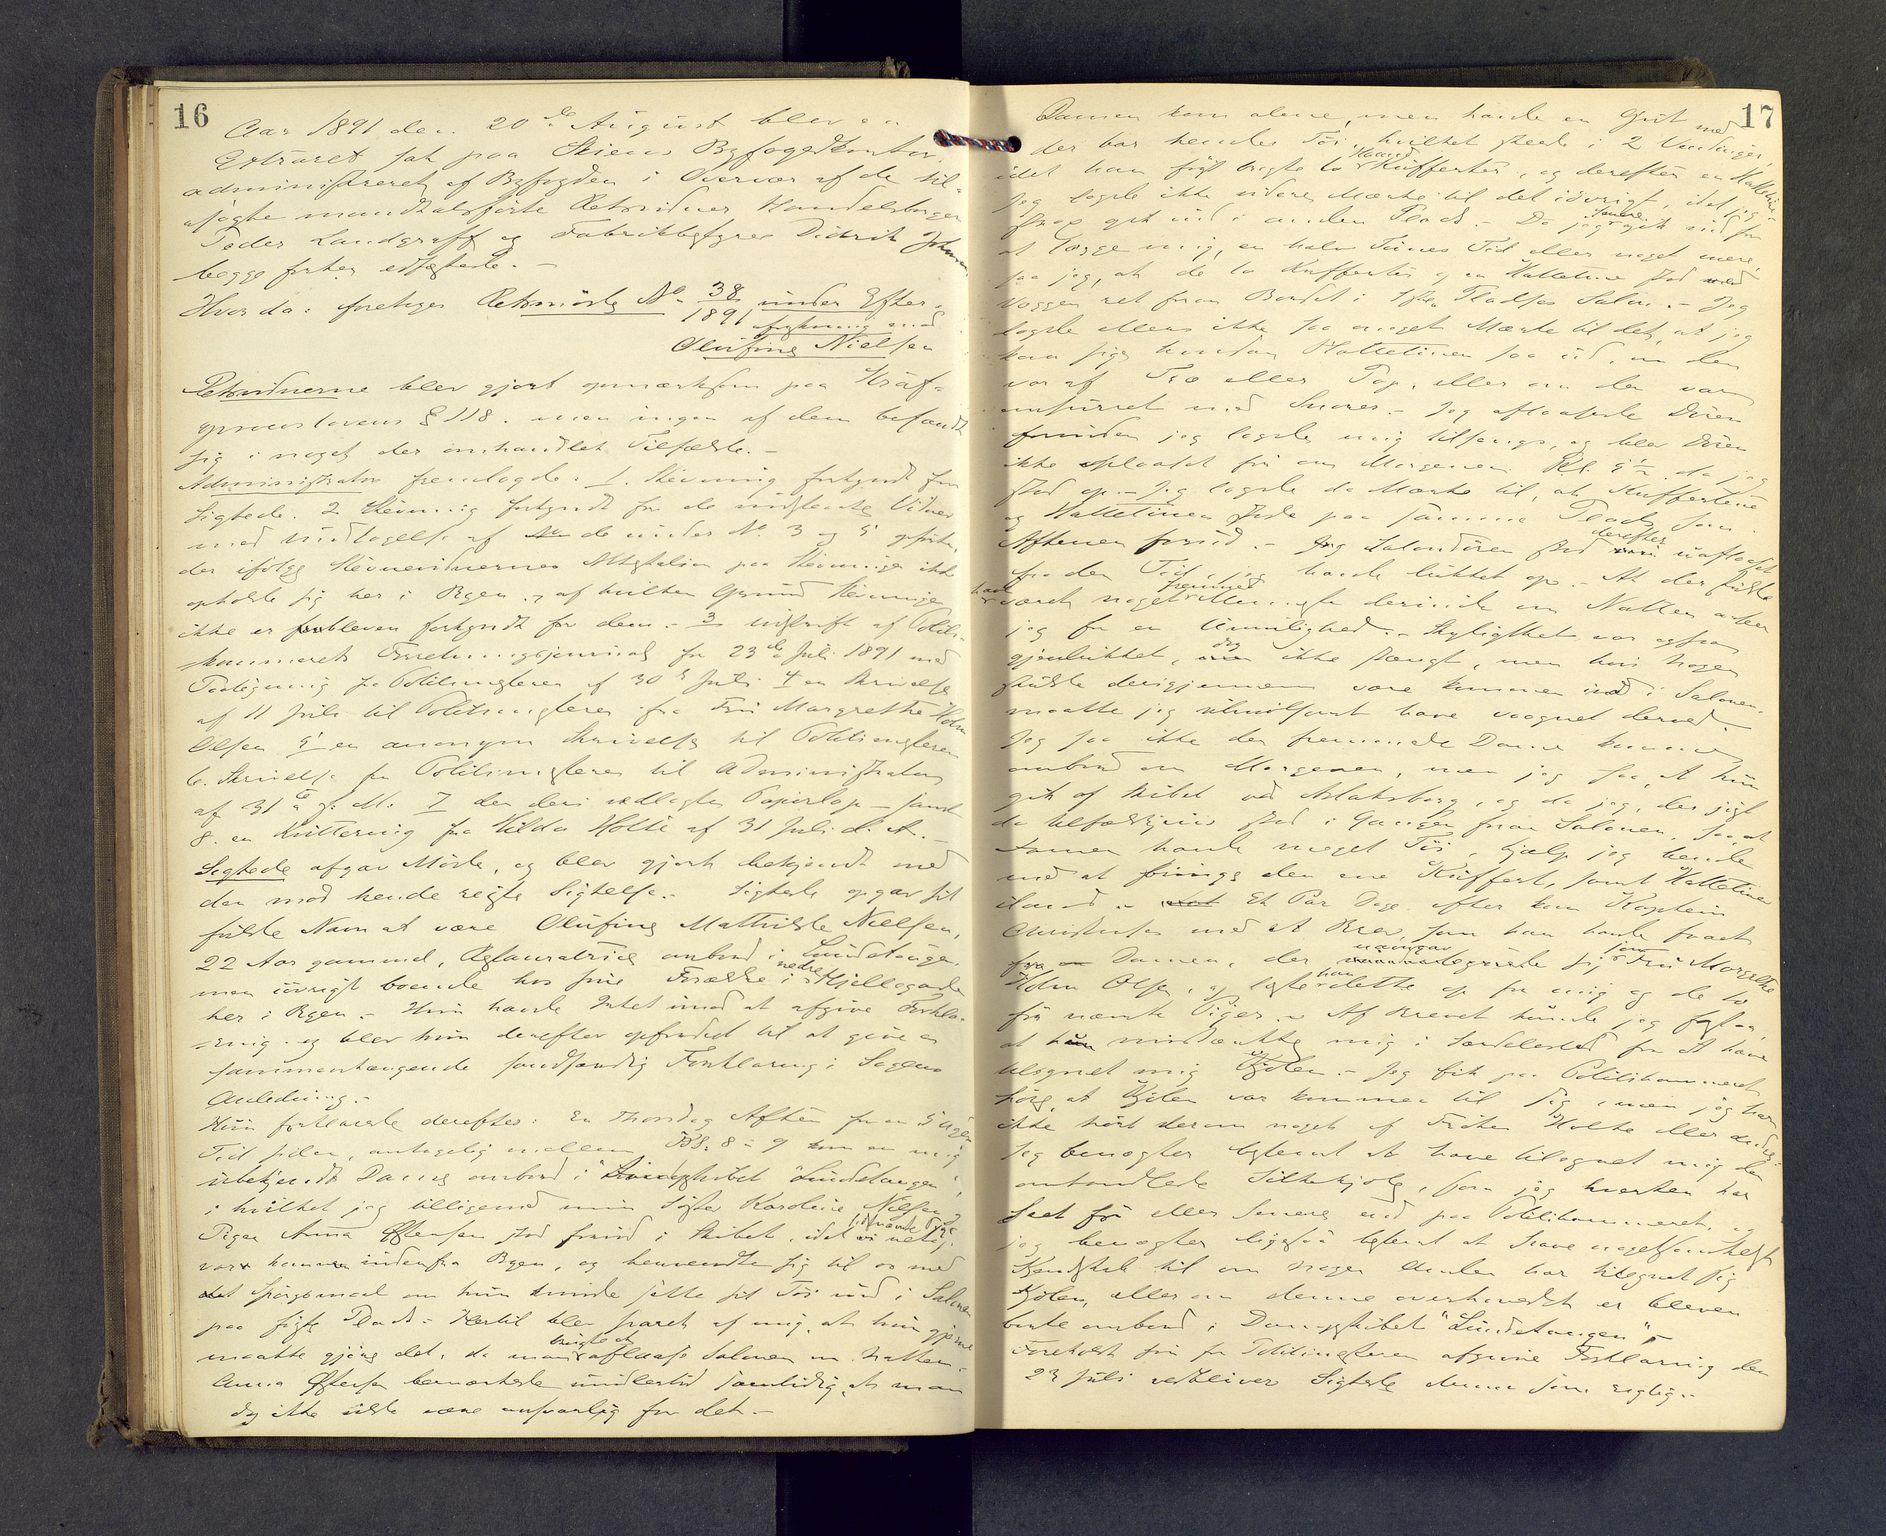 16
Aar 1891 den 20de August blev en
Extraret sat paa Skiens Byfogedkontor
administreret af Byfogden i Overvær af de til-
søgte mandtalsførte Retsvidner Handelsborger
Peder Landgraff og Fabrikbestyrer Didrik Johnsen
begge forhen edfæstede. -
Hvorda: foretoges Retsmøde No 38/1891 under Efter-
forskning mod
Olufine Nielsen
Retsvidnerne blev gjort opmærksom paa Straf-
proceslovens § 118. men ingen af dem befandt
sig i noget der omhandlet Tilfælde. -
Administrator fremlagde: 1. Stevning forkyndt for
Sigtede. 2 Stevning forkyndt for de indstevnte Vidner
med Undtagelse af de under No 3 og 5 opførte,
der ifølge Stevnevidnernes Attestation paa Stevningen ikke
opholde sig her i Byen, af hvilken Grund Stevningen
ikke er bleven forkyndt for dem. - 3 Udskrift af Politi-
kammerets Forretningsjournal for 23de Juli 1891 med
Paategning fra Politimesteren af 30 s Juli 4 en Skrivelse
af 11 Juli til Politimesteren fra Fru Margrethe Holm
Olsen 5 en anonym Skrivelse til Politimesteren
6. Skrivelse fra Politimesteren til Administrator
af 31te f. M. 7 den deri vedlagte Papirlap - samt
8. en Kvittering fra Hilda Holte af 31 Juli d. A. -
Sigtede afgav Møde, og blev gjort bekjendt med
den mod hende reiste Sigtelse. - Sigtede opgav sit
fulde Navn at være Olufine Mathilde Nielsen,
22 Aar gammel, Restauratrice ombord i "Lundetangen",
men iøvrigt boende hos sine Forældre i nedre Hjellegade
her i Byen. - Hun havde Intet imod at afgive Forkla-
ring. og blev hun derefter opfordret til at give en
sammenhængende sandfærdig Forklaring i Sagens
Anledning. -
Hun forklarede derefter: En Thorsdag Aften for en 5 Ugers
Tid siden, antagelig mellem Kl. 8 à 9 kom en mig
ubekjendt Dame ombord i Dampskibet "Lundetangen",
i hvilket jeg tilligemed min Søster Karoline Nielsen og
Pigen Anna Østensen stod forud i Skibet, idet vi netop
var kommen indenfra Byen, og henvendte sig til os med
det Spørgsmaal om hun kunde sætte sit Tøi ind i Salonen
paa sidste Plads. - Hertil blev svaret af mig, at hun gjerne
maatte gjøre det, da man pleiede at aflaase Salonen om Natten. -
Anna Østensen bemærkede imidlertid samtidig, at man
dog ikke vilde være ansvarlig for det. -
17
Damen kom alene, men havde en Gut med
der bar hendes Tøi, hvilket skede i 2 Vendinger,
idet han først bragte to Haand Kufferter, og derefter en Hattetine. -
Jeg lagde ikke videre Mærke til det iøvrigt, idet jeg
strax gik ind i anden Plads. - Da jeg senere gik ind for
at lægge mig, en halv Times Tid eller noget mere,
saa jeg, at de to Kufferter og en Hattetine stod ved
Væggen ret foran Bordet i 1ste Pladses Salon. - Jeg
lagde ellers ikke saa meget Mærke til det, at jeg
kan sige hvordan Hattetinen saa ud, om den
var af Træ eller Pap, eller om den var
omsurret med Snorer. - Jeg aflaasede Døren
forinden jeg lagde mig tilsengs, og blev Døren
ikke oplaast før om Morgenen Kl. 5 ½ da jeg
stod op. - Jeg lagde da Mærke til, at Kufferterne
og Hattetinen stode paa samme Plads som
Aftenen forud. - Salondøren stod derefter uaflaaset
fra den Tid, jeg havde lukket op. - At der skulde
have været noget fremmed Menneske derinde om Natten anser
jeg for en Umulighed. - Skylightet var ogsaa
gjenlukket, dog ikke stængt, men hvis Nogen
skulde derigjennem være kommen ind i Salonen,
maatte jeg uhvilsomt have vaagnet derved. -
Jeg saa ikke den fremmede Dame komme
ombord om Morgenen, men jeg saa, at hun
gik af Skibet ved Aslaksborg, og da jeg, der just
da tilfældigvis stod i Gangen foran Salonen, saa, at
Damen havde meget Tøi, hjalp jeg hende
med at bringe den ene Kuffert, samt Hattetinen
iland. - Et Par Dage efter kom Kaptein
Christensen med et Brev, som han havde faaet
fra Damen, der underskrev sig som Fru Margrethe
Holm Olsen, og læste han dette op for mig og de to
før nævnte Piger. - Af Brevet kunde jeg forstaa,
at hun mistænkte mig i Særdeleshed for at have
tilegnet mig Kjolen. - Jeg fik paa Politikammeret
høre, at Kjolen var kommen til Rette, men jeg har
ikke hørt derom noget af Frøken Holte eller andre. -
Jeg benægter bestemt at have tilegnet mig den
omhandlede Silkekjole, som jeg hverken har
seet før eller senere end paa Politikammeret, og
jeg benægter ligesaa bestemt at have nogetsomhelst
Kjendskab til om nogen Anden har tilegnet sig
Kjolen, eller om denne overhovedet er bleven
borte ombord i Dampskibet "Lundetangen". -
Foreholdt sin for Politimesteren afgivne Forklaring den
23 Juli vedbliver Sigtede denne som rigtig. -